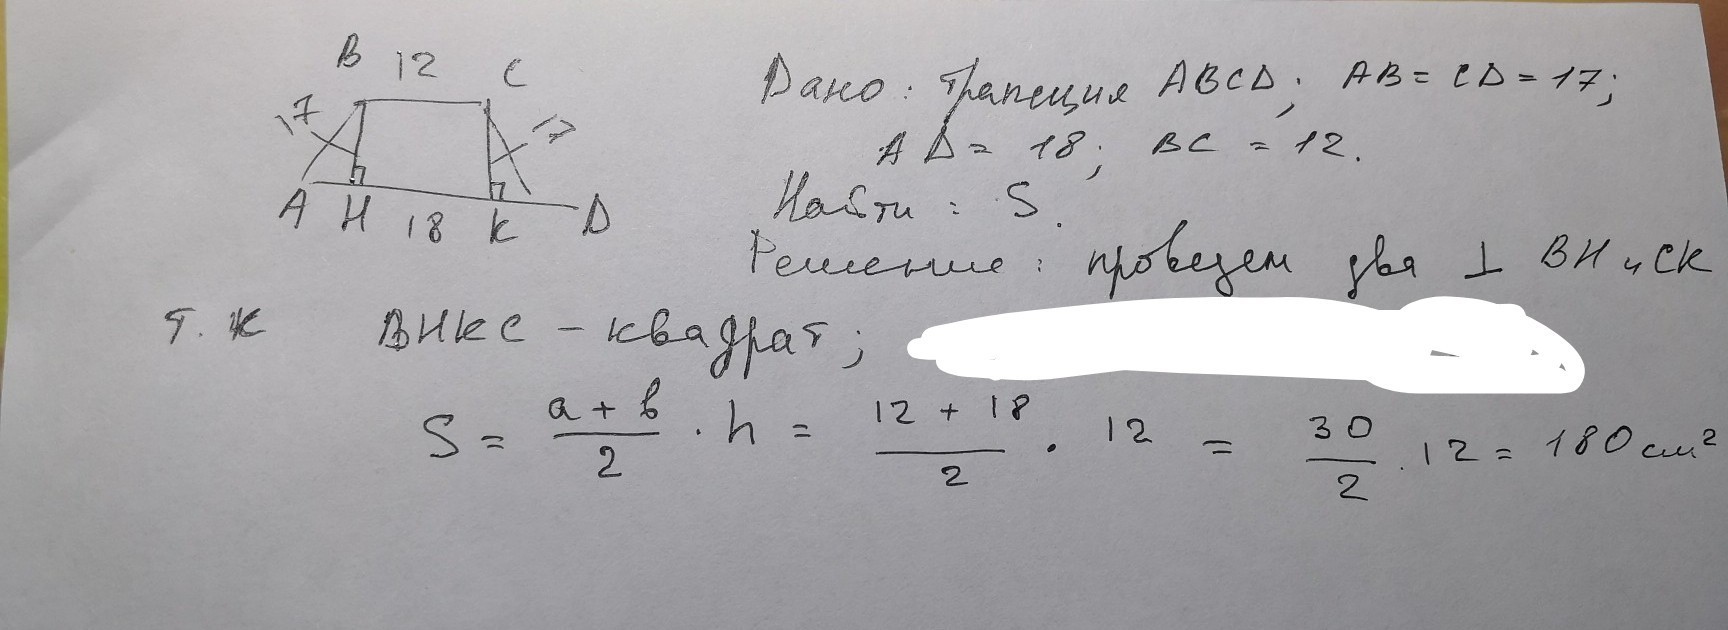 B 12 C
17 17
A H 18 K D
Дано: трапеция ABCD; AB = CD = 17;
AD = 18; BC = 12.
Найти: S.
Решение: проведем два ⊥ BH и CK
т.к BHKC - квадрат;
S = a + b / 2 · h = 12 + 18 / 2 · 12 = 30 / 2 · 12 = 180 см²